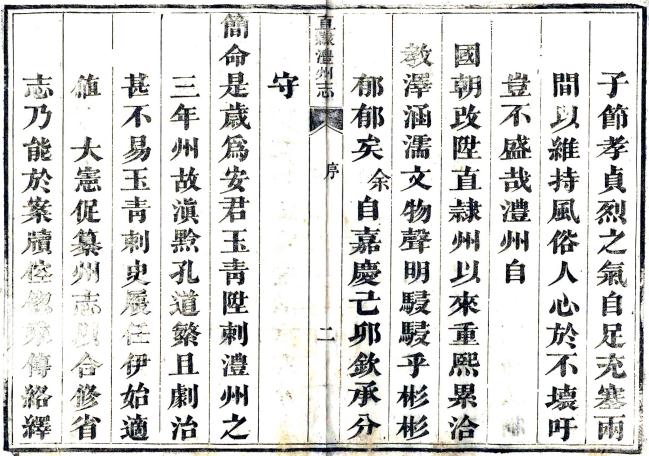 子節孝貞烈之氣自足充塞兩
間以維持風俗人心於不壞吁
豈不盛哉澧州自
國朝改陞直隸州以來重熙累洽
教澤涵濡文物聲明駸駸乎彬彬
郁郁矣余自嘉慶己卯欽承分
直隸澧州志
序
二
守
簡命是歲爲安君玉青陞刺澧州之
三年州故滇黔孔道繁且劇治
甚不易玉青刺史履任伊始適
值 大憲促纂州志以合修省
志乃能於案牘倥傳紹繹